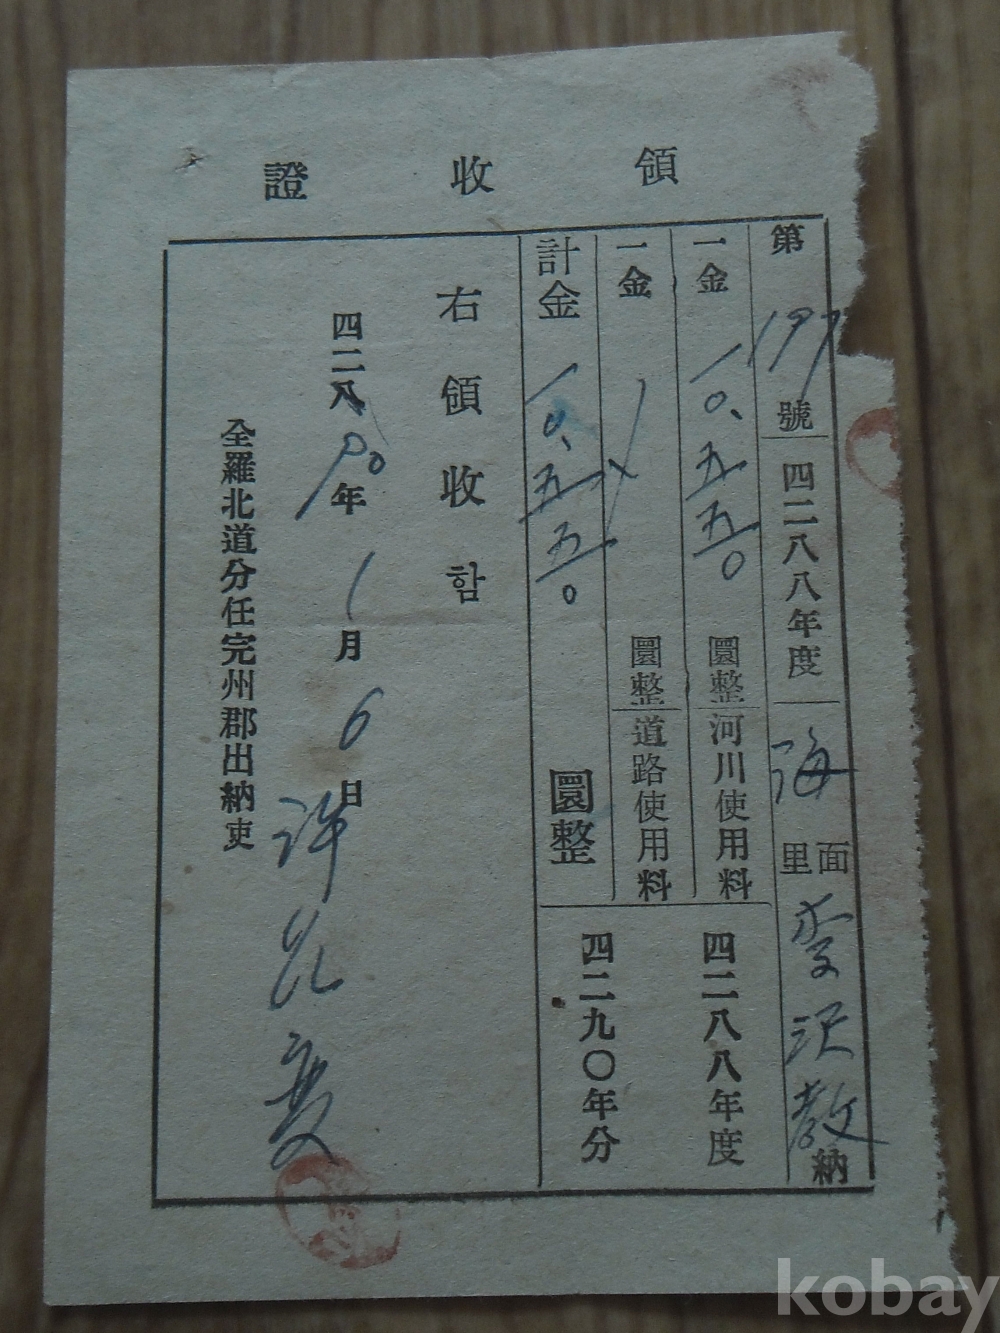 領收證
第 號 四二八八年度 海 面里 李沢教 納
一金 一〇、五五〇 圜整 河川使用料 四二八八年度
一金 圜整 道路使用料 四二九〇年分
計金 一〇、五五〇 圜整
右領收함
四二八90年1月6日
全羅北道分任完州郡出納吏
許
kobay